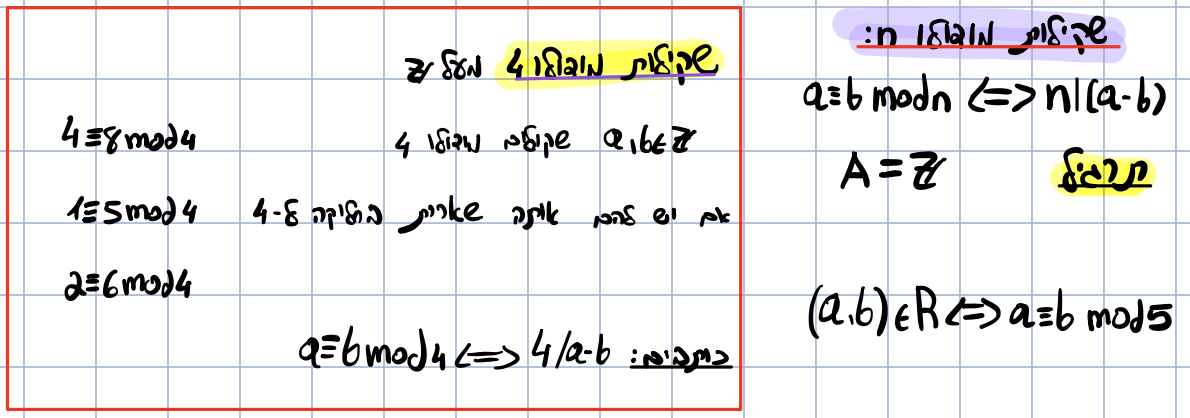 שקילות מודולו n:
a≡b mod n <=> n|(a-b)
תרגיל
A=ℤ
(a,b)∈R <=> a≡b mod 5
שקילות מודולו 4 מעל ℤ
a,b∈ℤ שקולים מודולו 4
אם יש להם אותה שארית בחלוקה ל-4
כותבים: a≡b mod 4 <=> 4/a-b
4≡8 mod 4
1≡5 mod 4
2≡6 mod 4